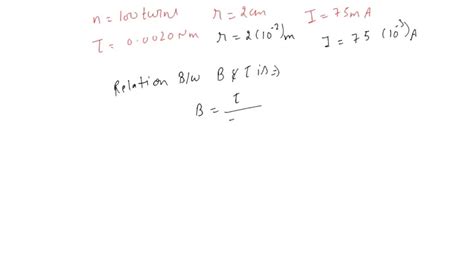 n = 100 turns r = 2cm I = 75mA
τ = 0.0020Nm r = 2(10⁻²)m I = 75 (10⁻³)A
Relation B/w B & τ is ⇒
B = τ / -